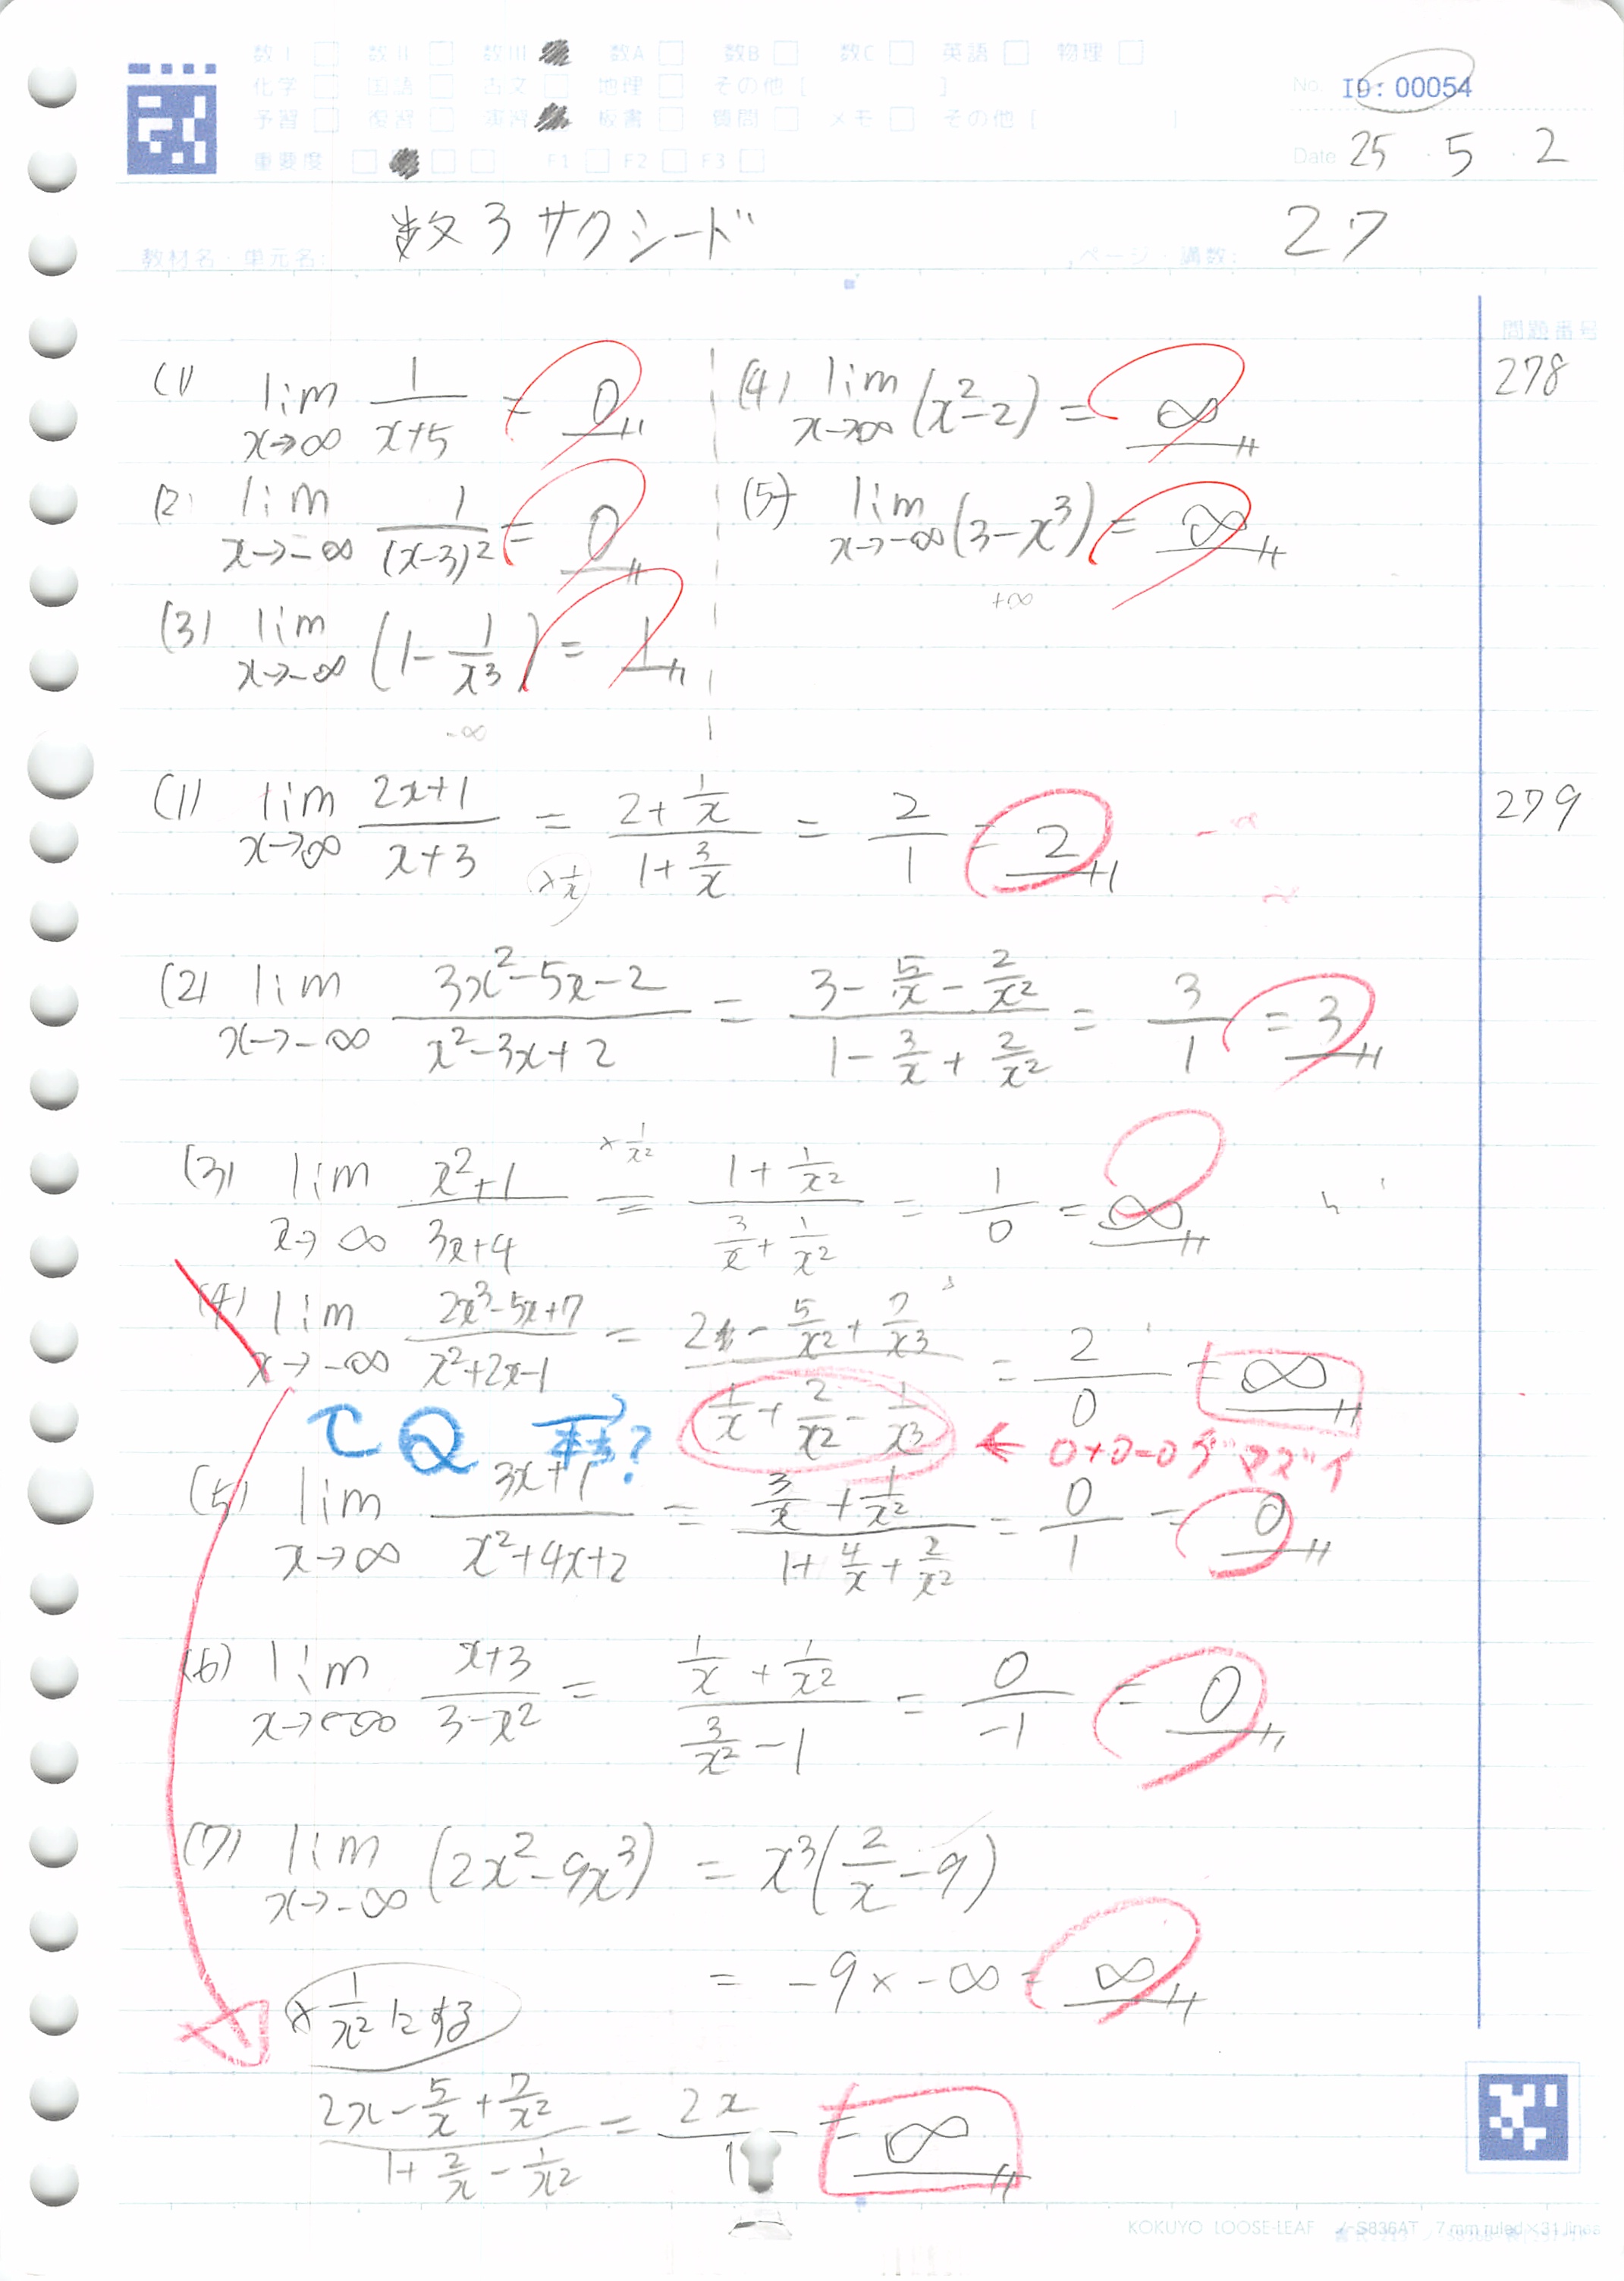 数I □ 数II □ 数III 数A □ 数B □ 数C □ 英語 □ 物理 □
化学 □ 国語 □ 古文 □ 地理 □ その他 [ ]
予習 □ 復習 □ 演習 板書 □ 質問 □ メモ □ その他 [ ]
重要度 □ □ □ F1 □ F2 □ F3 □
No. ID: 00054
Date 25 ・ 5 ・ 2
教材名・単元名: 数3サクシード
ページ・講数: 27
問題番号
278
(1) lim x→∞ 1/(x+5) = 0
(2) lim x→-∞ 1/(x-3)² = 0
(3) lim x→-∞ (1-1/x³) = 1
-∞
(4) lim x→∞ (x²-2) = ∞
(5) lim x→-∞ (3-x³) = ∞
+∞
279
(1) lim x→∞ (2x+1)/(x+3) = (2+1/x)/(1+3/x) = 2/1 = 2
×1/x
(2) lim x→-∞ (3x²-5x-2)/(x²-3x+2) = (3-5/x-2/x²)/(1-3/x+2/x²) = 3/1 = 3
×1/x²
(3) lim x→∞ (x²+1)/(3x+4) = (1+1/x²)/(3/x+1/x²) = 1/0 = ∞
(4) lim x→-∞ (2x³-5x+7)/(x²+2x-1) = (2-5/x²+7/x³)/(1/x+2/x²-1/x³) = 2/0 = ∞
← 0+0-0がマズイ
(5) lim x→∞ (3x+1)/(x²+4x+2) = (3/x+1/x²)/(1+4/x+2/x²) = 0/1 = 0
(6) lim x→-∞ (x+3)/(3-x²) = (1/x+1/x²)/(3/x²-1) = 0/-1 = 0
(7) lim x→-∞ (2x²-9x³) = x³(2/x-9)
= -9×-∞ = ∞
×1/x² にする
(2x-5/x+7/x²)/(1+2/x-1/x²) = 2x/1 = ∞
KOKUYO LOOSE-LEAF ノ-S836AT 7 mm ruled×31 lines